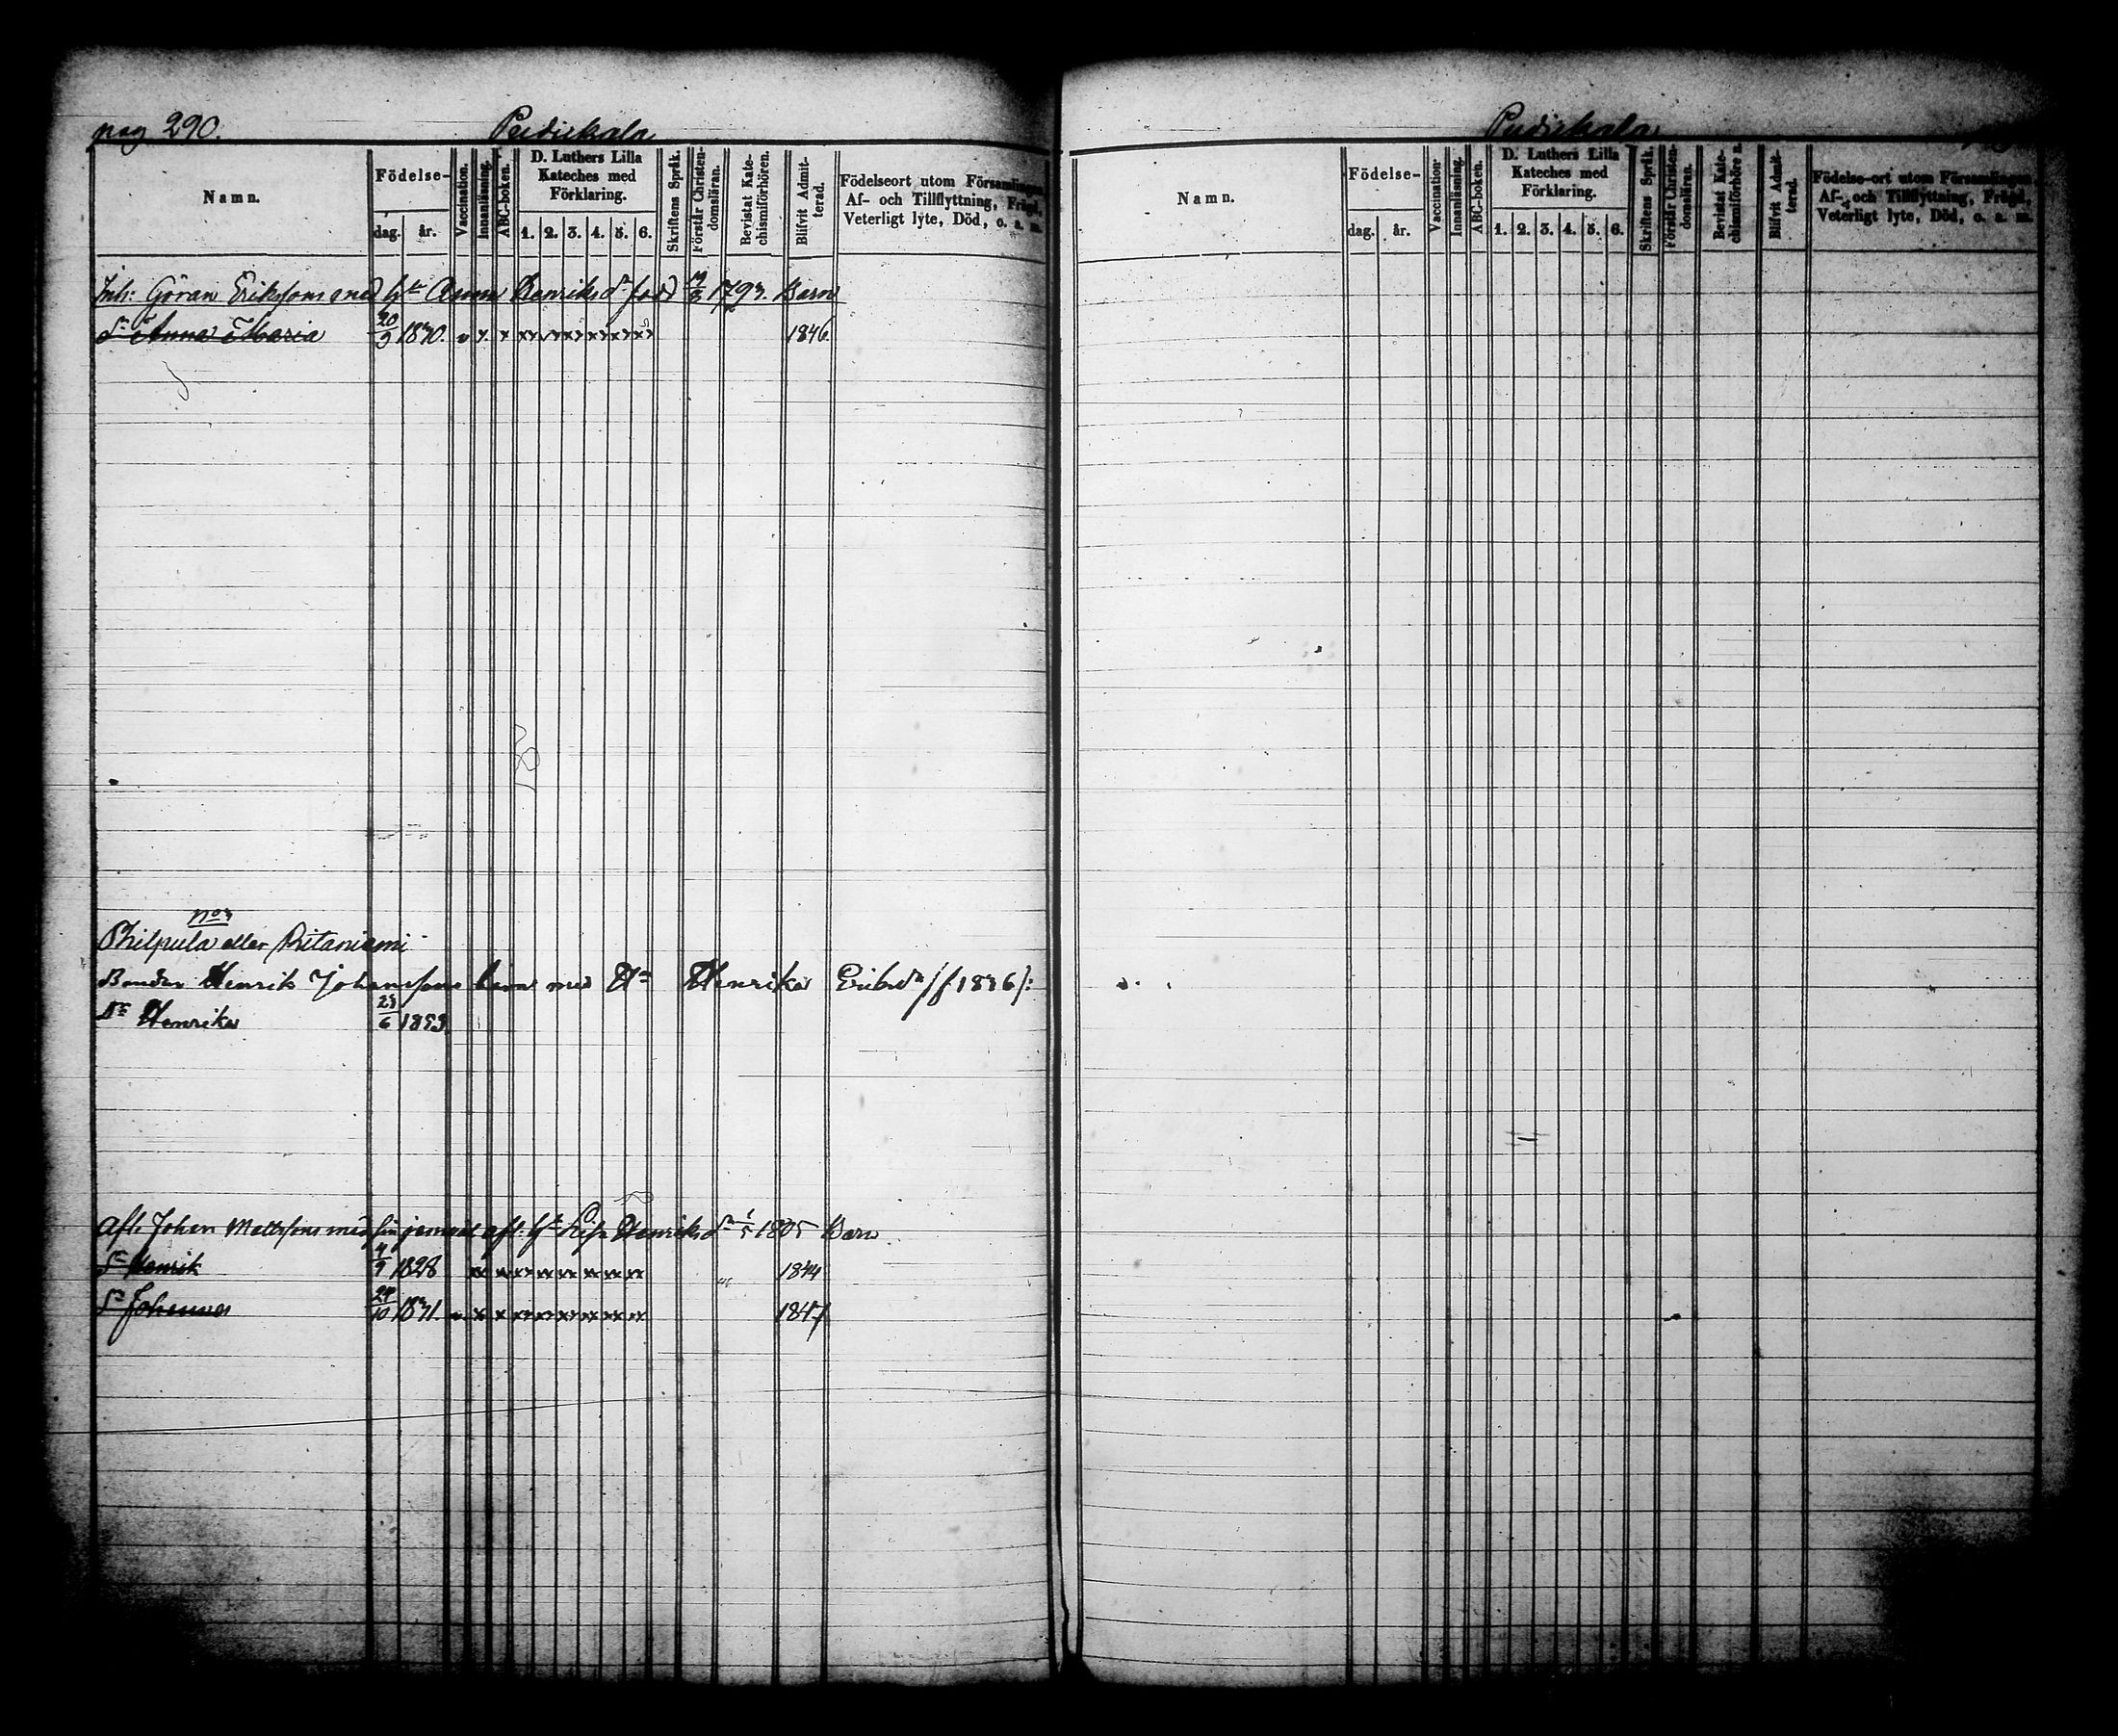 pag 290.
Pudickala
Namn.
Födelse-
dag. år.
Vaccination.
Innanläsning.
ABC-boken.
D. Luthers Lilla Kateches med Förklaring.
1. 2. 3. 4. 5. 6.
Skriftens Språk.
Förstår Christen-domsläran.
Bevistat Kate-chismiförhören.
Blifvit Admit-terad.
Födelseort utom Församlingen, Af- och Tillflyttning, Frägd, Veterligt lyte, Död, o. a. m.
Inh: Göran Eriksons med h:u Anna Henriksd:r född 1793. Barn
D:r Anna Maria 20/9 1830. v x x xx xx xx xx xx xx 1846.
No 3
Philpula eller Ritaniemi
Bonden Henrik Johanssons barn med H:u Henrika Eriksd:r /f. 1836/:
D:r Henrika 23/6 1853
Afl: Johan Mattssons med sin jemväl afl: h:u Lisa Henriksd:r 1/5 1805 Barn
S:n Henrik 4/9 1828 xx xx xx xx xx xx xx xx 1844
S:n Johannes 24/10 1831. v x x xx xx xx xx xx xx 1847
Pudickala
Namn.
Födelse-
dag. år.
Vaccination.
Innanläsning.
ABC-boken.
D. Luthers Lilla Kateches med Förklaring.
1. 2. 3. 4. 5. 6.
Skriftens Språk.
Förstår Christen-domsläran.
Bevistat Kate-chismiförhören.
Blifvit Admit-terad.
Födelse-ort utom Församlingen, Af- och Tillflyttning, Frägd, Veterligt lyte, Död, o. a. m.